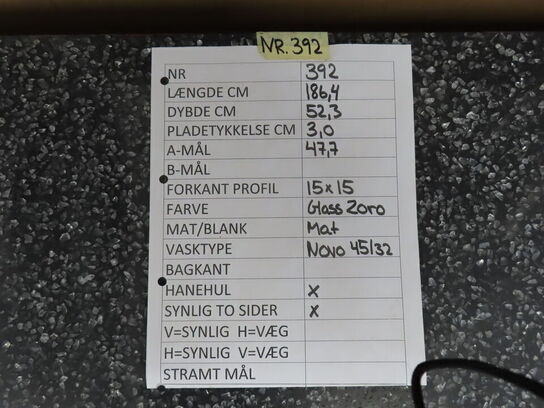 NR. 392
NR 392
LÆNGDE CM 186,4
DYBDE CM 52,3
PLADETYKKELSE CM 3,0
A-MÅL 47,7
B-MÅL
FORKANT PROFIL 15x15
FARVE Glass Zoro
MAT/BLANK Mat
VASKTYPE Novo 45/32
BAGKANT
HANEHUL X
SYNLIG TO SIDER X
V=SYNLIG H=VÆG
H=SYNLIG V=VÆG
STRAMT MÅL